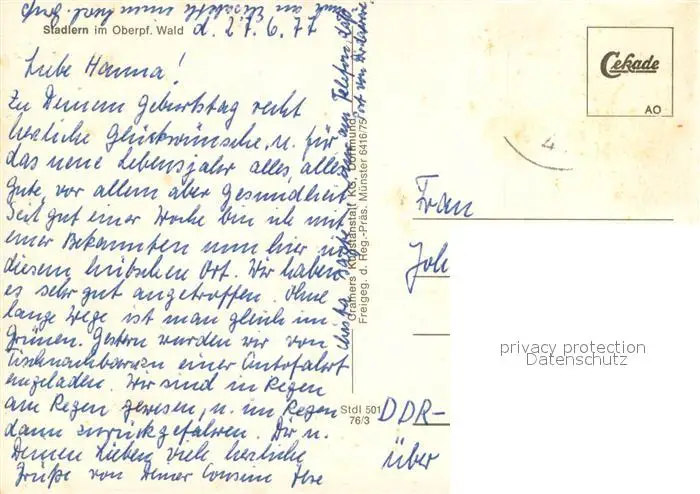 Stadlern im Oberpf. Wald d. 27.6.77
Liebe Hanna!
Zu Deinem Geburtstag recht
herzliche Glückwünsche, u. für
das neue Lebensjahr alles, alles
Gute, vor allem aber Gesundheit.
Seit gut einer Woche bin ich mit
einer Bekannten nun hier in
diesem hübschen Ort. Wir haben
es sehr gut angetroffen. Ohne
lange Wege ist man gleich im
Grünen. Gestern wurden wir von
Tischnachbarn zu einer Autofahrt
eingeladen. Wir sind in Regen
am Regen gewesen, u. im Regen
dann zurückgefahren. Dir u.
Deinen Lieben viele herzliche
Grüße von Deiner Cousine Ilse
am Telefon
Cramers Kunstanstalt KG, Dortmund
Freigeg. d. Reg.-Präs. Münster 6416/75
Stdl 501
76/3
Cekade
AO
4
Frau
Joh
DDR-
über
privacy protection
Datenschutz